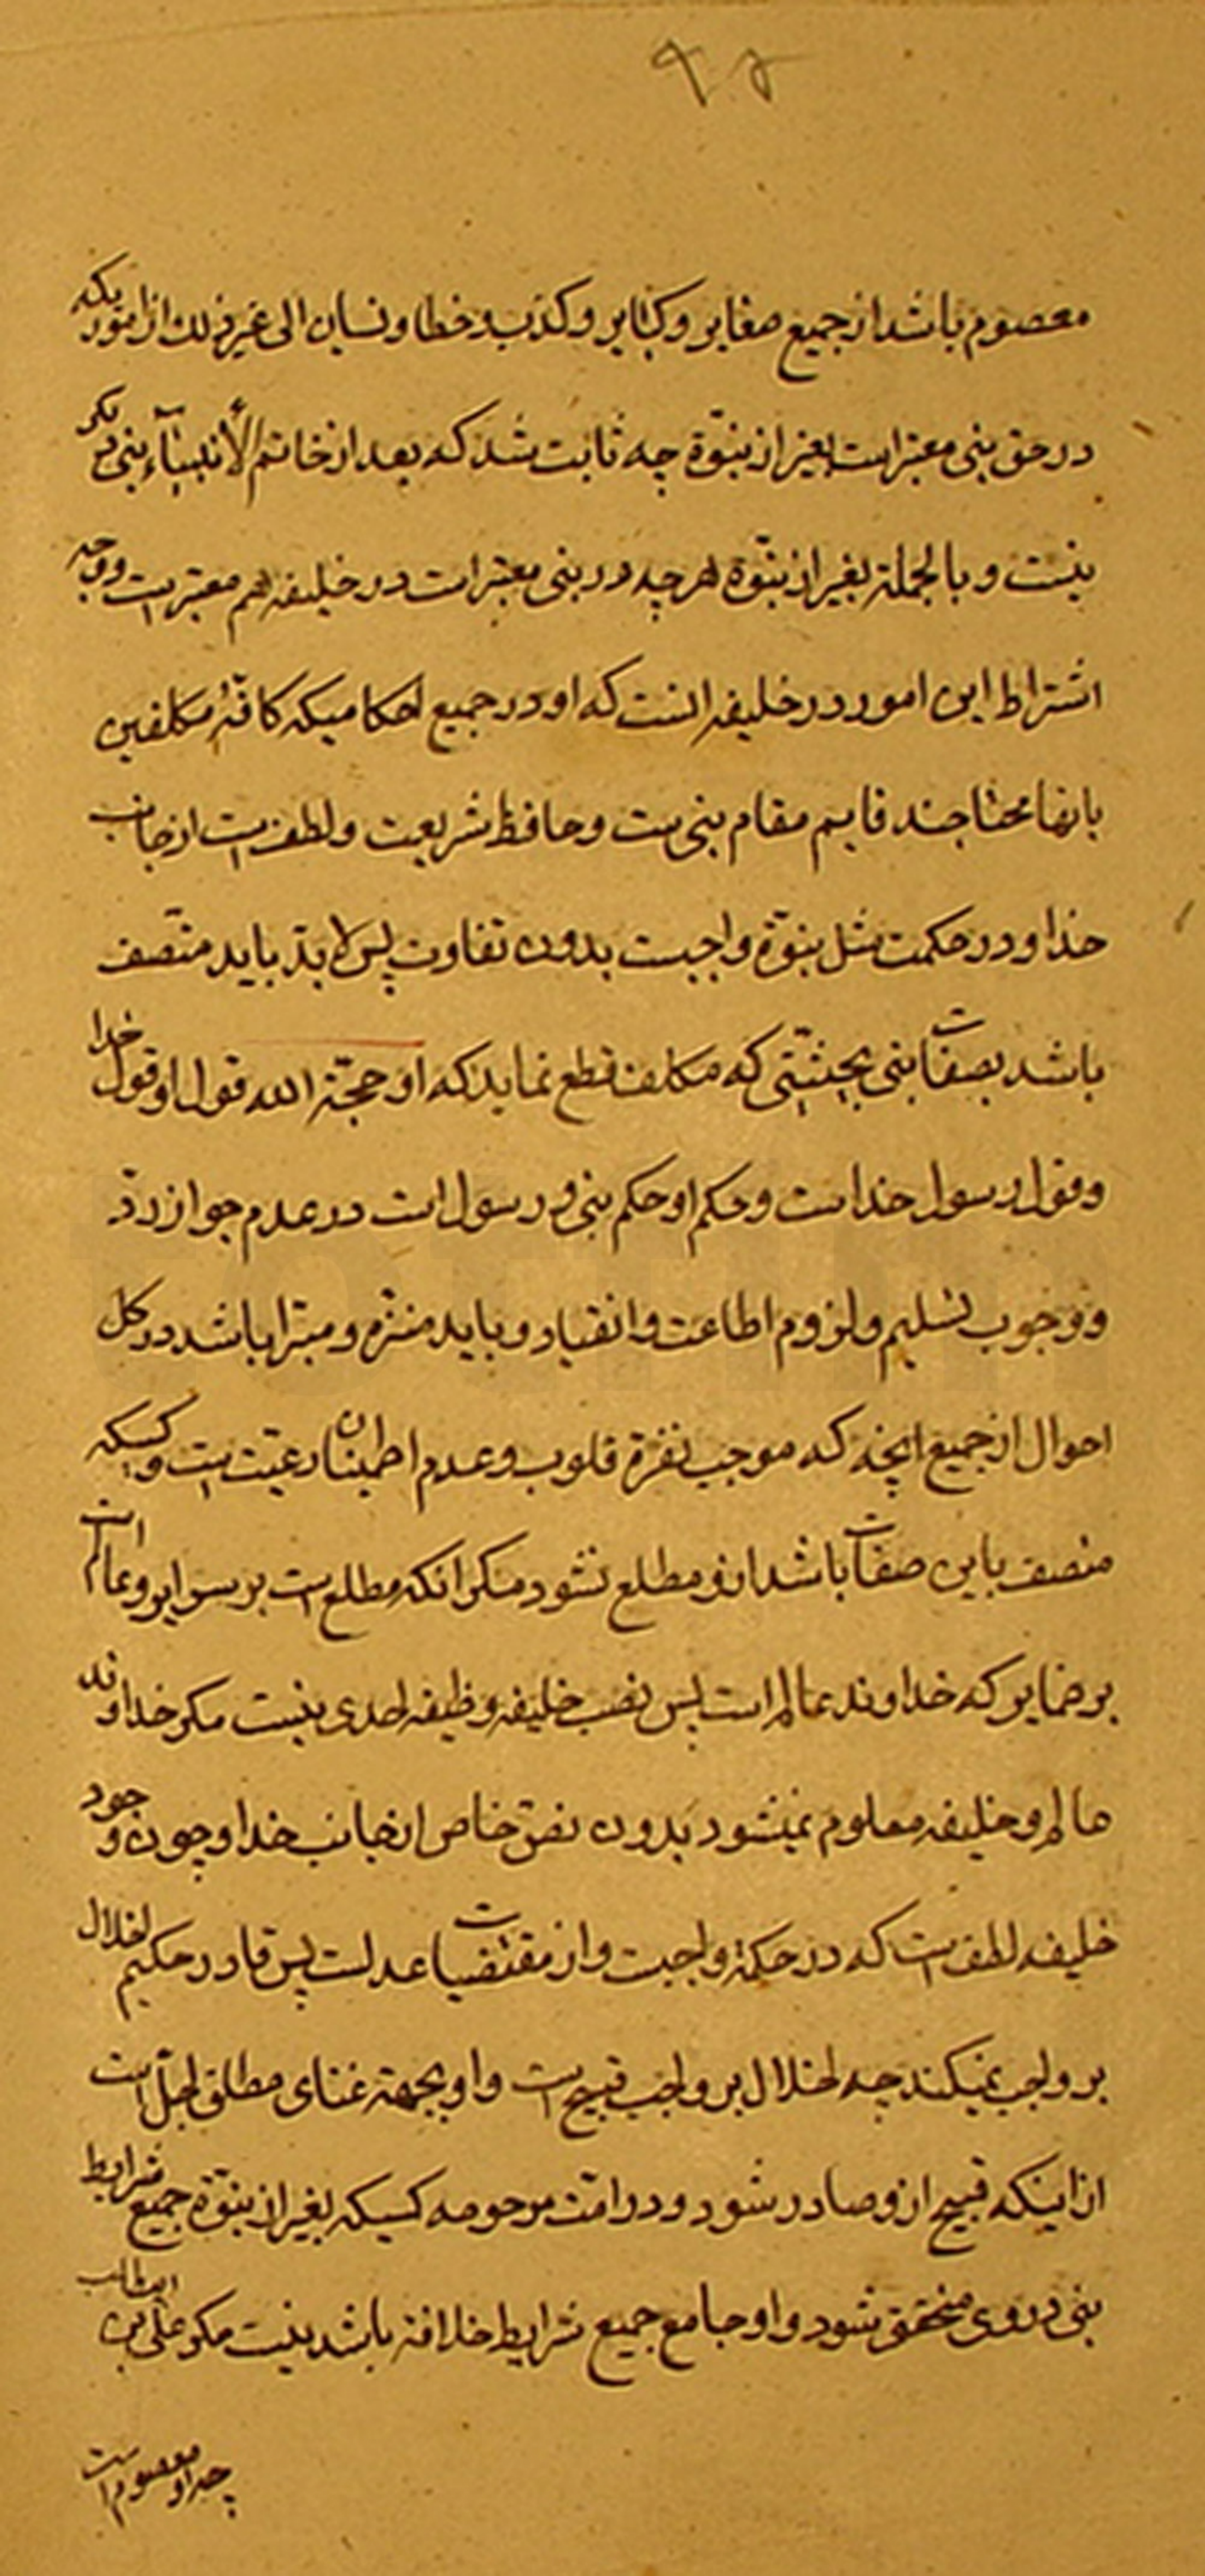 ۹۵
معصوم باشد از جمیع صغایر و کبایر و کذب و خطا و نسیان الی غیر ذلک از اموریکه
در حق نبی معتبر است بغیر از نبوّة چه ثابت شد که بعد از خاتم الأنبیآء نبی دیگر
نیست و بالجملة بغیر از نبوّة هر چه در نبی معتبر است در خلیفه هم معتبر است و وجه
اشتراط این امور در خلیفه انست که او در جمیع احکامیکه کافّهٔ مکلفین
بانها محتاجند قایم مقام نبی است و حافظ شریعت و لطف است از جانب
خدا و در حکمت مثل نبوّة واجبست بدون تفاوت پس لابدّ باید متّصف
باشد بصفات نبی بحیثیّتی که مکلف قطع نماید که او حجّة الله قول او قول خدا
و قول رسول خداست و حکم او حکم نبی و رسول است در عدم جواز ردّ
و وجوب تسلیم و لزوم اطاعت و انقیاد و باید منزّه و مبرّا باشد در کل
احوال از جمیع انچه که موجب نفرة قلوب و عدم اطمینان رعیّت است و کسیکه
متصف باین صفات باشد ازو مطلع نشود مکر انکه مطلع است بر سرایر و عالم است
بر ضمایر که خداوند عالم است پس نصب خلیفه وظیفه احدی نیست مکر خداوند
عالم و خلیفه معلوم نمیشود بدون نصّ خاص از جانب خدا و چون وجود
خلیفه لطف است که در حکمة واجبست و از مقتضیات عدلست پس قادر حکیم اخلال
بر واجب نمیکند چه اخلال بر واجب قبیح است و او بجهة غنای مطلق اجلّ است
از اینکه قبیح ازو صادر شود و در امّت مرحومه کسیکه بغیر از نبوّة جمیع شرایط
نبی در وی متحقق شود و او جامع جمیع شرایط خلافة باشد نیست مکر علی بن ابیطالب
چه او معصوم است